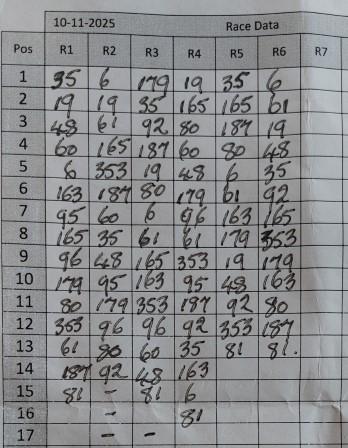 10-11-2025 Race Data
Pos R1 R2 R3 R4 R5 R6 R7
1 35 6 179 19 35 6
2 19 19 35 165 165 61
3 48 61 92 80 187 19
4 60 165 187 60 80 48
5 6 353 19 48 6 35
6 163 187 80 179 61 92
7 95 60 6 96 163 165
8 165 35 61 61 179 353
9 96 48 165 353 19 179
10 179 95 163 95 48 163
11 80 179 353 187 92 80
12 353 96 96 92 353 187
13 61 80 60 35 81 81.
14 187 92 48 163
15 81 - 81 6
16 - 81
17 - -